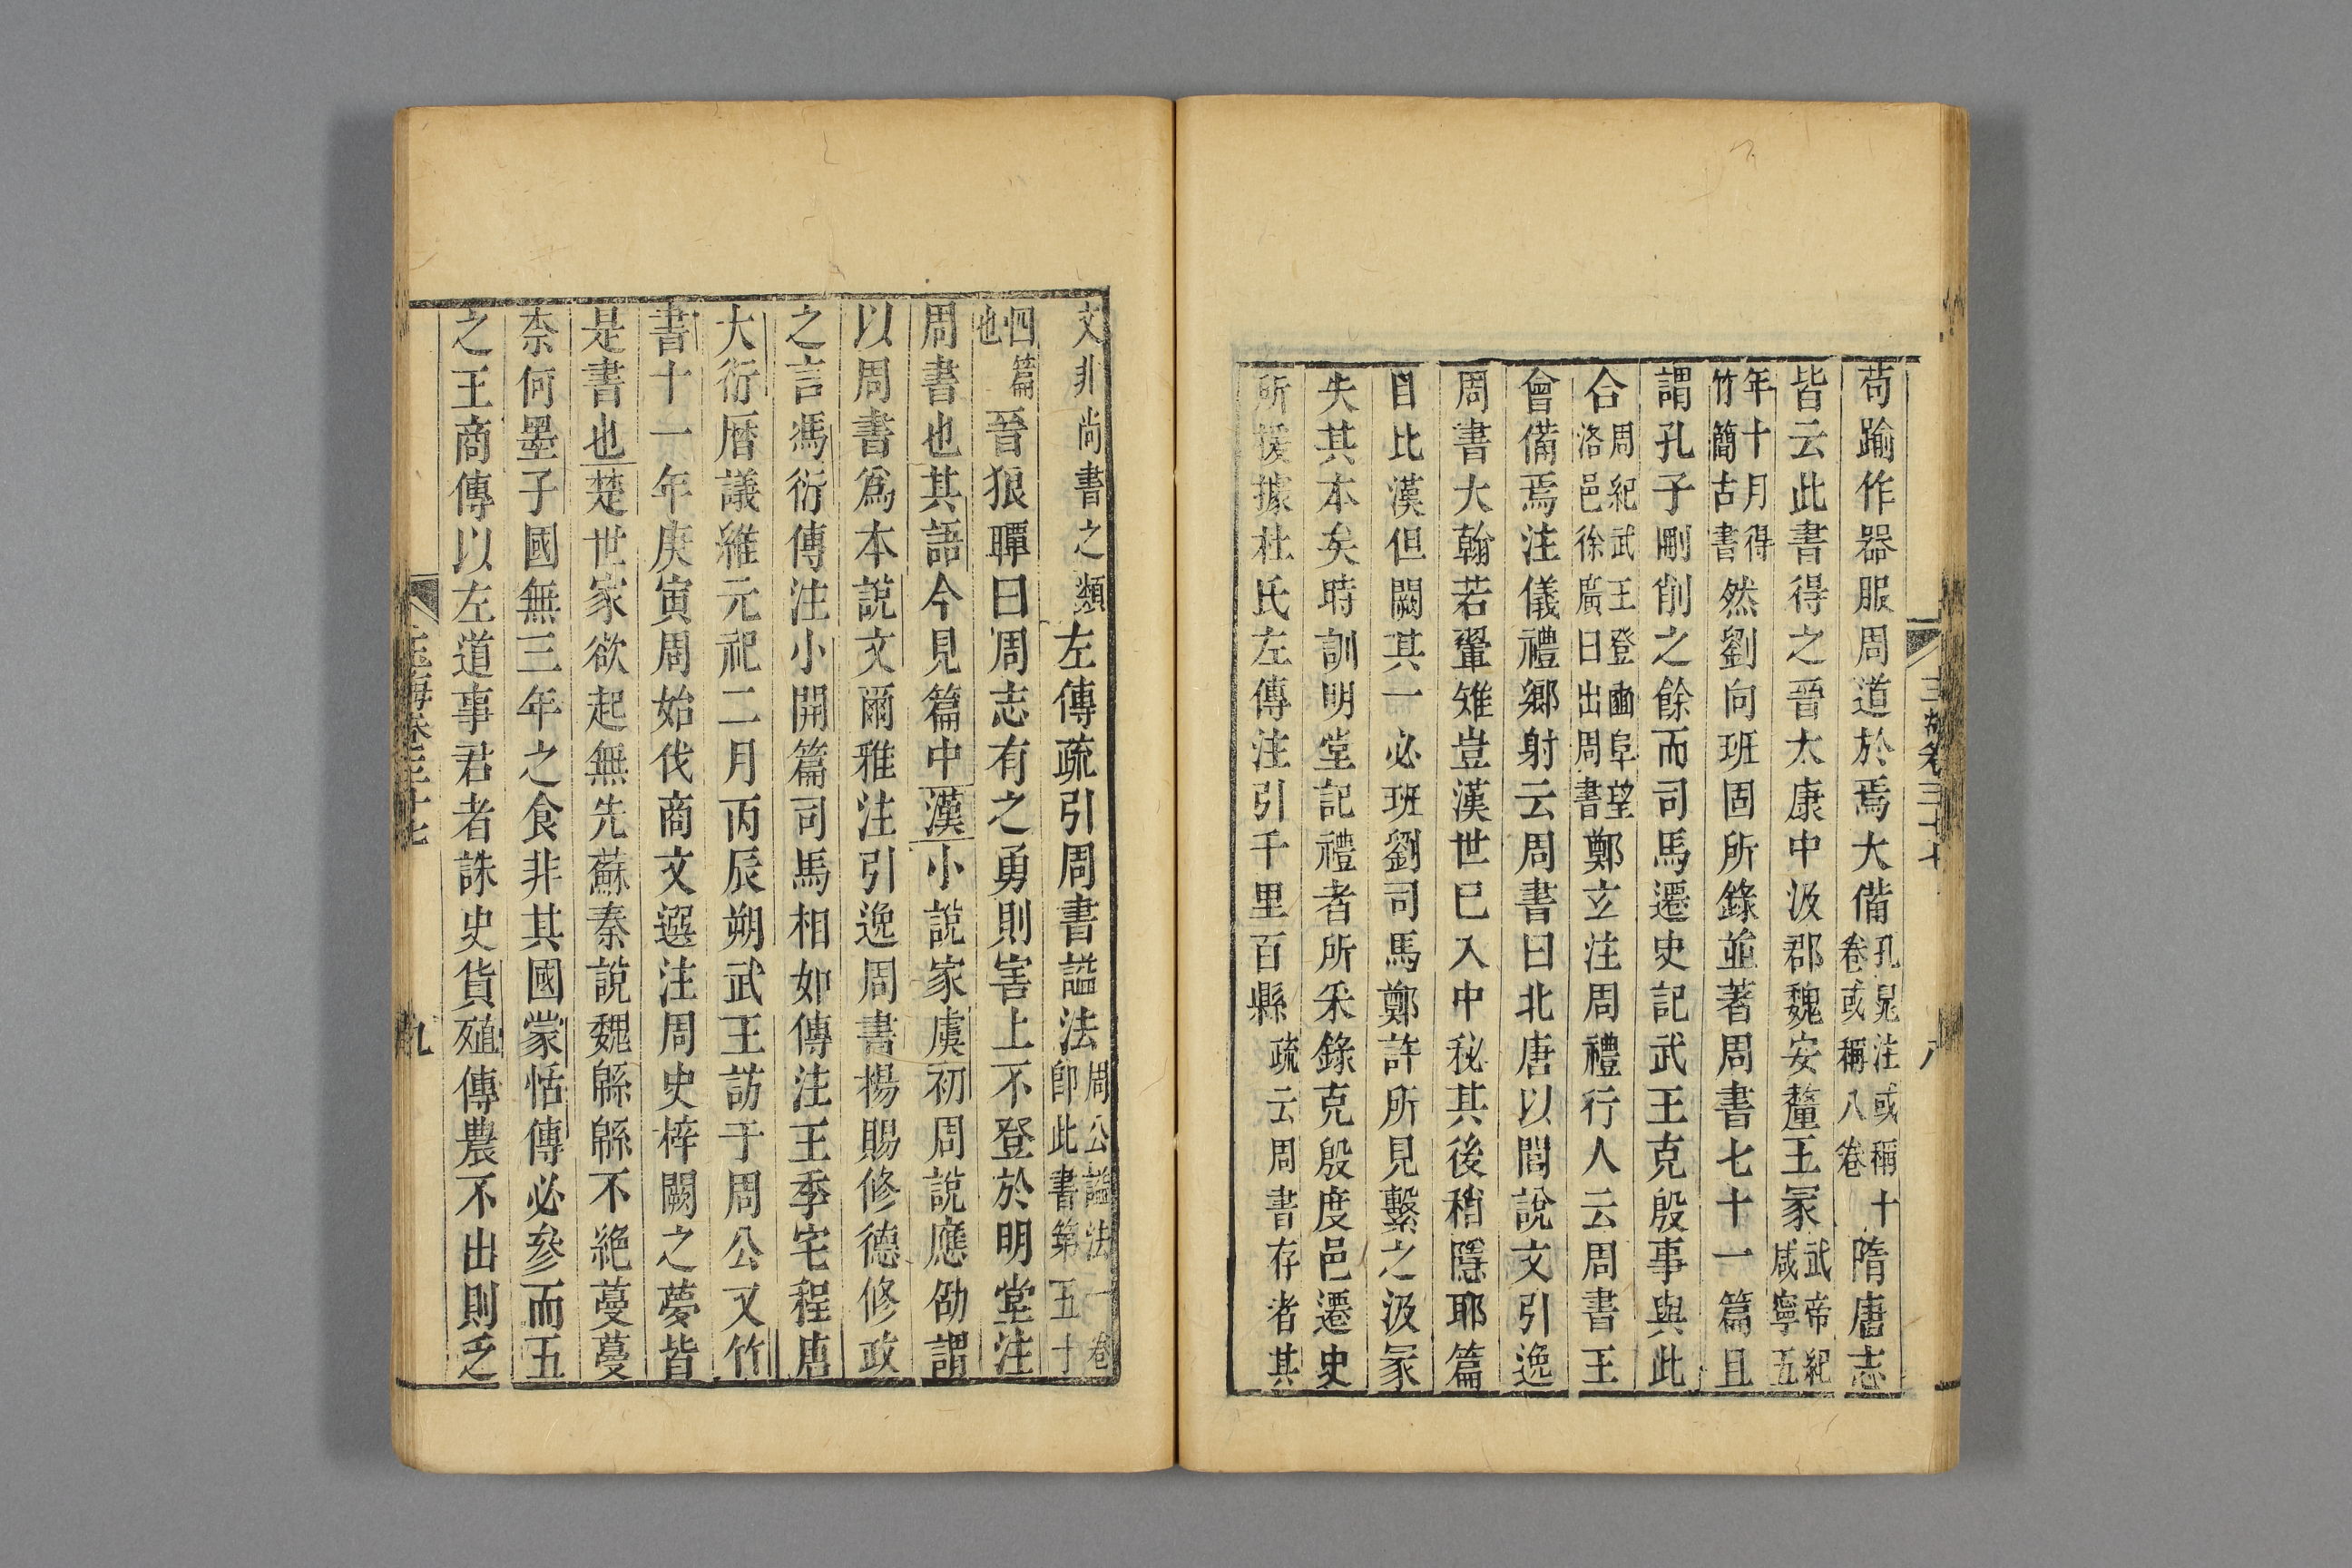 苟踰作器服周道於焉大備孔晁注或稱十卷或稱八卷隋唐志
皆云此書得之晉太康中汲郡魏安釐王冢武帝紀咸寧五
年十月得竹簡古書然劉向班固所錄並著周書七十一篇且
謂孔子刪削之餘而司馬遷史記武王克殷事與此
合周紀武王登豳阜望洛邑徐廣曰出周書鄭玄注周禮行人云周書王
會備焉注儀禮鄉射云周書曰北唐以閭說文引逸
周書大翰若翬雉豈漢世巳入中秘其後稍隱耶篇
目比漢但闕其一必班劉司馬鄭許所見繫之汲冢
失其本矣時訓明堂記禮者所采錄克殷度邑遷史
所援據杜氏左傳注引千里百縣疏云周書存者其
文非尚書之類左傳疏引周書謚法周公謚法一卷即此書第五十
四篇也晉狼瞫曰周志有之勇則害上不登於明堂注
周書也其語今見篇中漢小說家虞初周說應劭謂
以周書爲本說文爾雅注引逸周書楊賜修德修政
之言馮衍傳注小開篇司馬相如傳注王季宅程唐
大衍曆議維元祀二月丙辰朔武王訪于周公又竹
書十一年庚寅周始伐商文選注周史梓闕之夢皆
是書也楚世家欲起無先蘇秦說魏緜緜不絶蔓蔓
柰何墨子國無三年之食非其國蒙恬傳必參而五
之王商傳以左道事君者誅史貨殖傳農不出則乏
玉海卷三十七
九